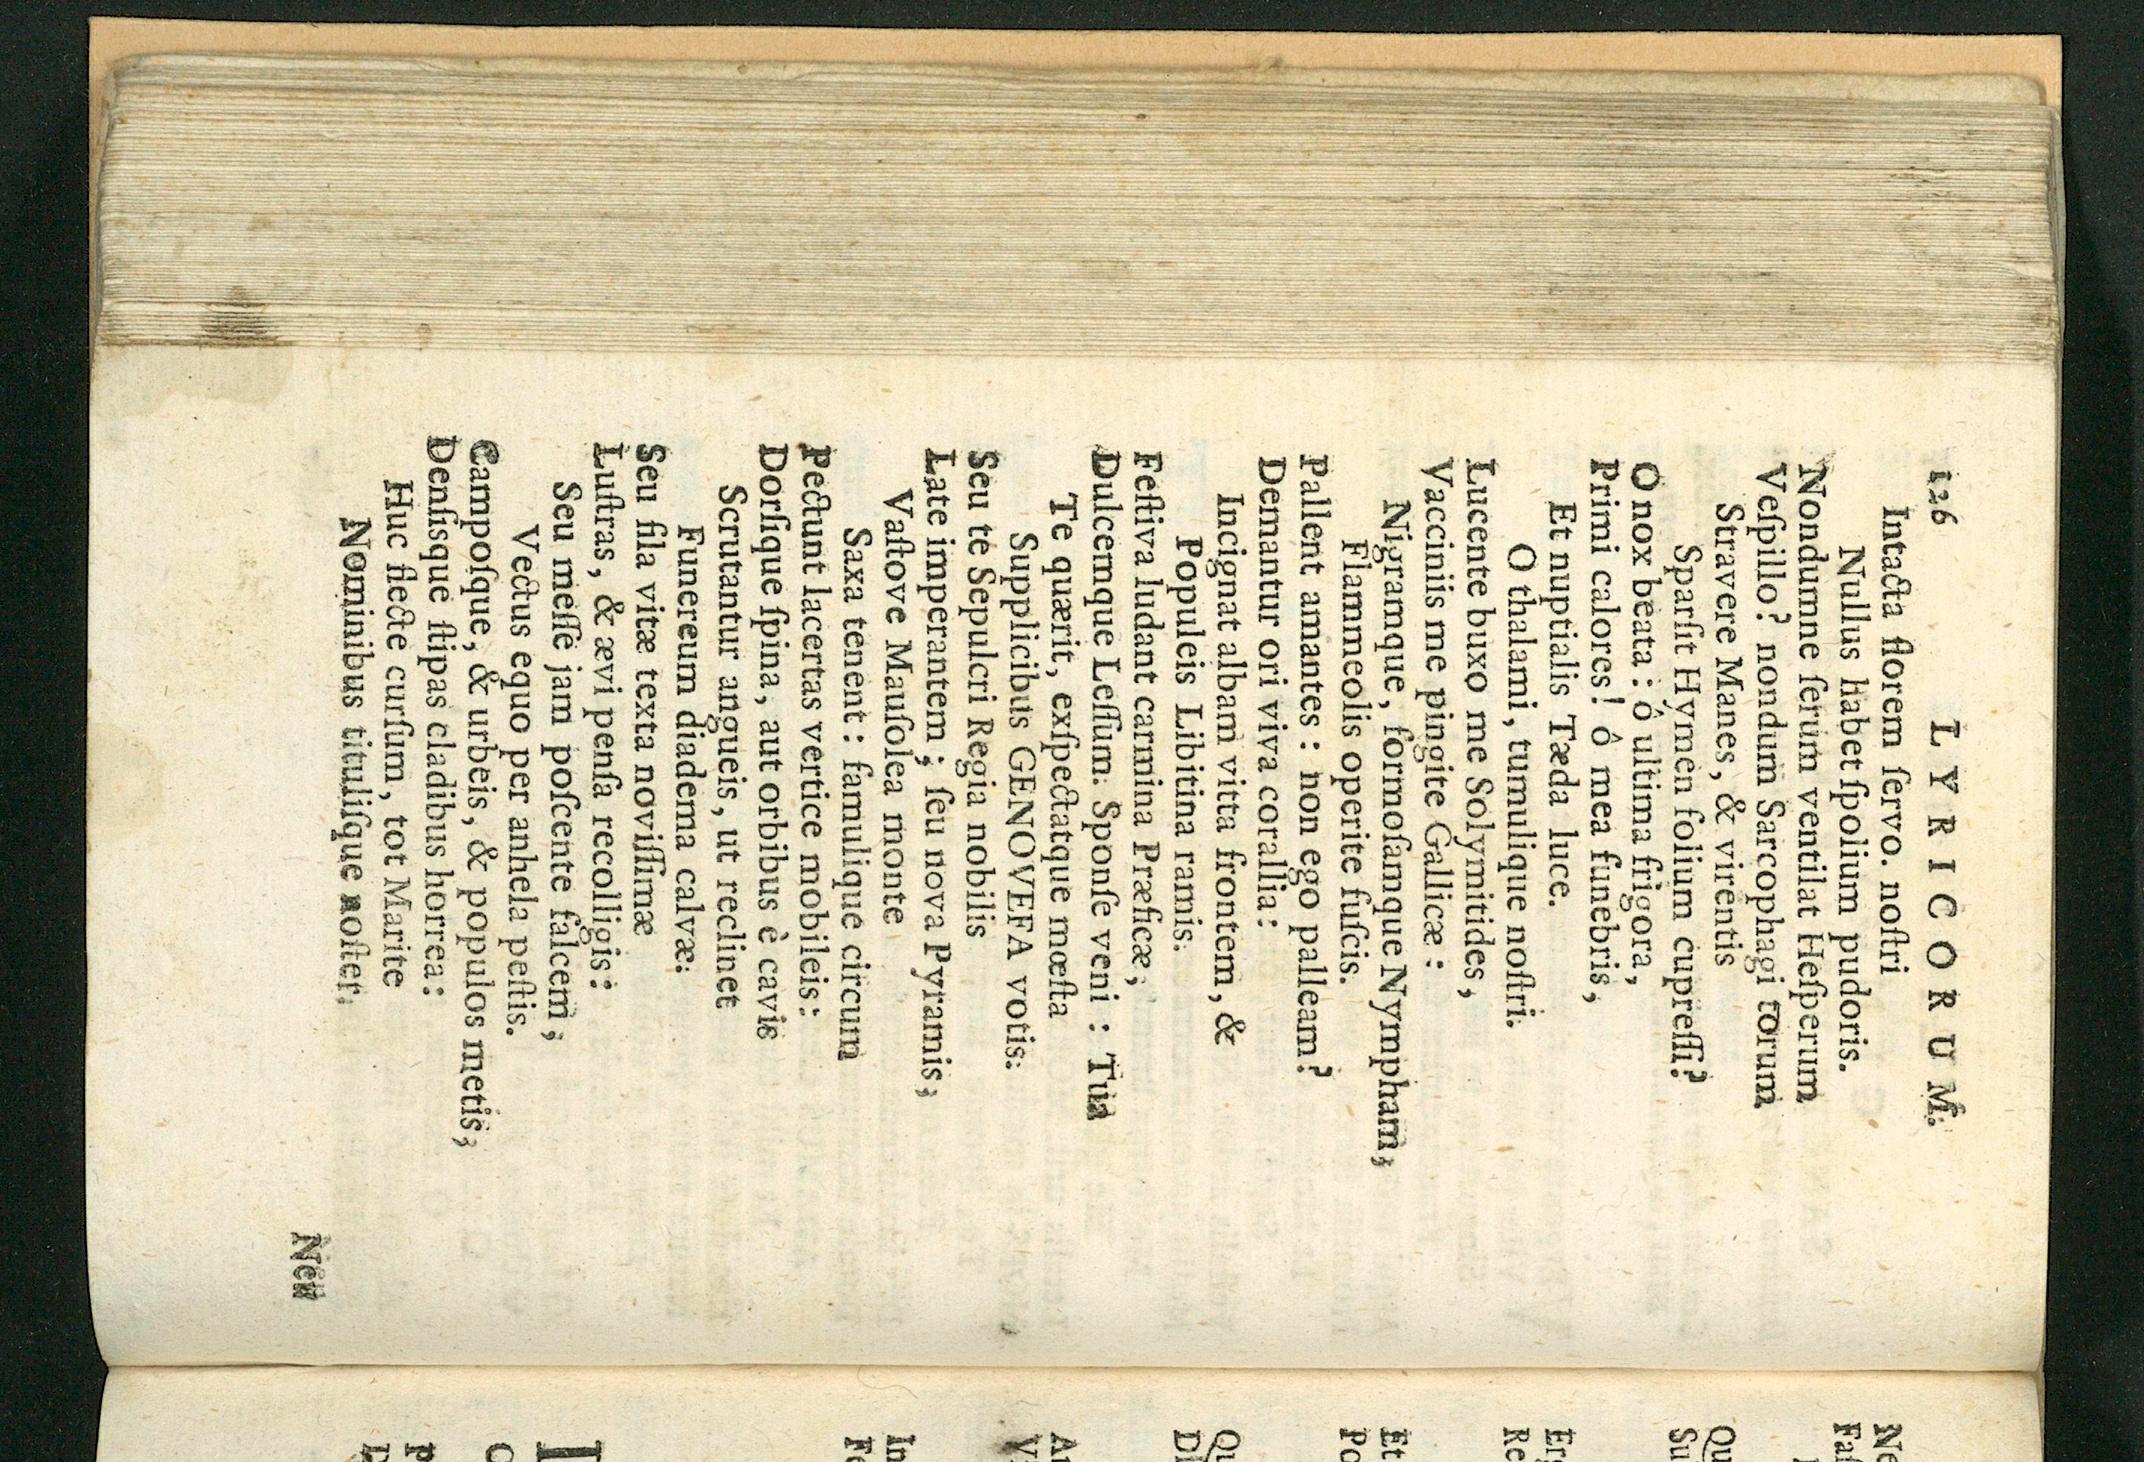 126 LYRICORUM.
Intacta florem ſervo. noſtri
Nullus habet ſpolium pudoris.
Nondumne ſerùm ventilat Heſperum
Veſpillo? nondum Sarcophagi torum
Stravere Manes, & virentis
Sparſit Hymen folium cupreſſi?
O nox beata: ô ultima frigora,
Primi calores! ô mea funebris,
Et nuptialis Tæda luce.
O thalami, tumulique noſtri.
Lucente buxo me Solymitides,
Vacciniis me pingite Gallicæ:
Nigramque, formoſamque Nympham,
Flammeolis operite fuſcis.
Pallent amantes: non ego palleam?
Demantur ori viva corallia:
Incignat albam vitta frontem, &
Populeis Libitina ramis.
Feſtiva ludant carmina Præficæ,
Dulcemque Leſſum. Sponſe veni: Tua
Te quærit, exſpectatque mœſta
Supplicibus GENOVEFA votis.
Seu te Sepulcri Regia nobilis
Late imperantem; ſeu nova Pyramis;
Vaſtove Mauſolea monte
Saxa tenent: famulique circum
Pectunt lacertas vertice mobileis:
Dorſique ſpina, aut orbibus è cavis
Scrutantur angueis, ut reclinet
Funereum diadema calvæ:
Seu fila vitæ texta noviſſimæ
Luſtras, & ævi penſa recolligis:
Seu meſſe jam poſcente falcem;
Vectus equo per anhela peſtis.
Campoſque, & urbeis, & populos metis;
Denſisque ſtipas cladibus horrea:
Huc flecte curſum, tot Marite
Nominibus tituliſque noſter.
Neu
Ne
Faſ
Qu
Su
Erg
Re
Et
Po
Qu
Di
An
In
Fe